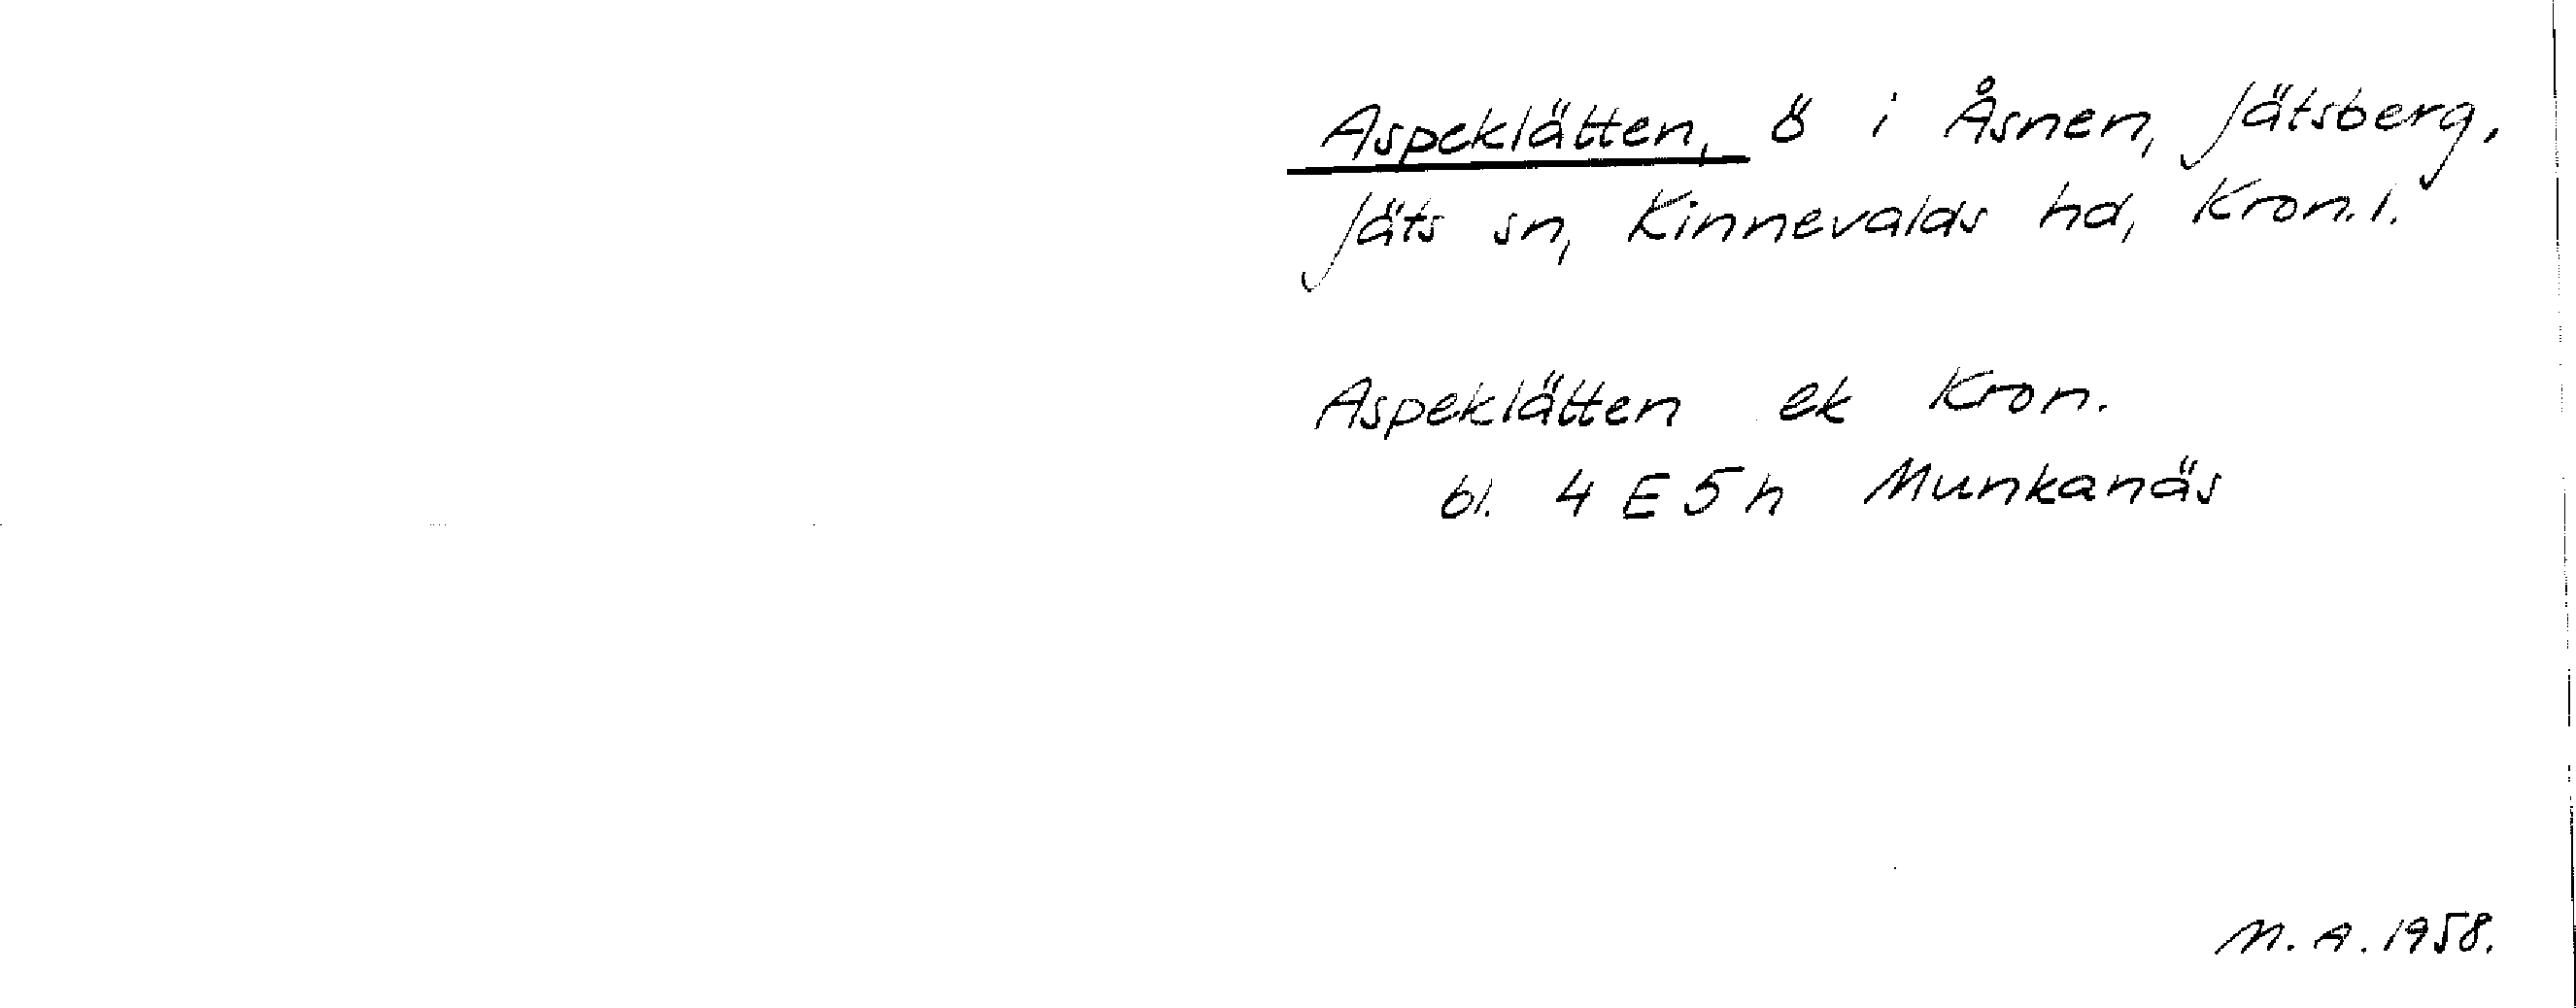 Aspeklätten, ö i Åsnen, Jätsberg,
Jäts sn, Kinnevalds hd, Kron.l.
Aspeklätten ek Kron.
bl. 4 E 5 h Munkanäs
M. A. 1958.